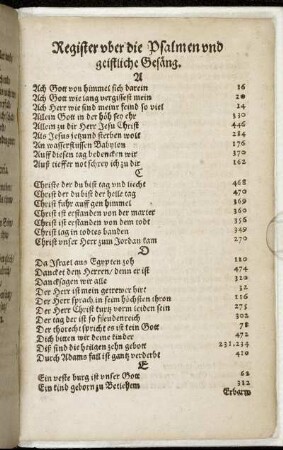 Register vber die Psalmen vnd
geistliche Gesäng.
A
Ach Gott von himmel sich darein 16
Ach Gott wie lang vergissest mein 20
Ach Herr wie sind meiner feind so viel 14
Allein Gott in der höh sey ehr 530
Allein zu dir Herr Jesu Christ 446
Als Jesus jetzund sterben wolt 284
An wasserflüssen Babylon 176
Auff diesen tag bedencken wir 370
Auß tieffer not schrey ich zu dir 162
C
Christe der du bist tag vnd liecht 468
Christ der du bist der helle tag 470
Christ fuhr auff gen himmel 359
Christ ist erstanden von der marter 360
Christ ist erstanden von dem todt 336
Christ lag in todtes banden 349
Christ vnser Herr zum Jordan kam 270
D
Da Israel aus Egypten zoh 110
Dancket dem Herren/ denn er ist 474
Dancksagen wir alle 320
Der Herr ist mein getrewer hirt 32
Der Herr sprach in seim höchsten thron 116
Der Herr Christ kurtz vorm leiden sein 275
Der tag der ist so freudenreich 302
Der thorecht spricht es ist kein Gott 78
Dich bitten wir deine kinder 472
Diß sind die heilgen zehn gebott 231.234
Durch Adams fall ist gantz verderbt 410
E
Ein veste burg ist vnser Gott 62
Ein kind geborn zu Bethlehem 312
Erbarm